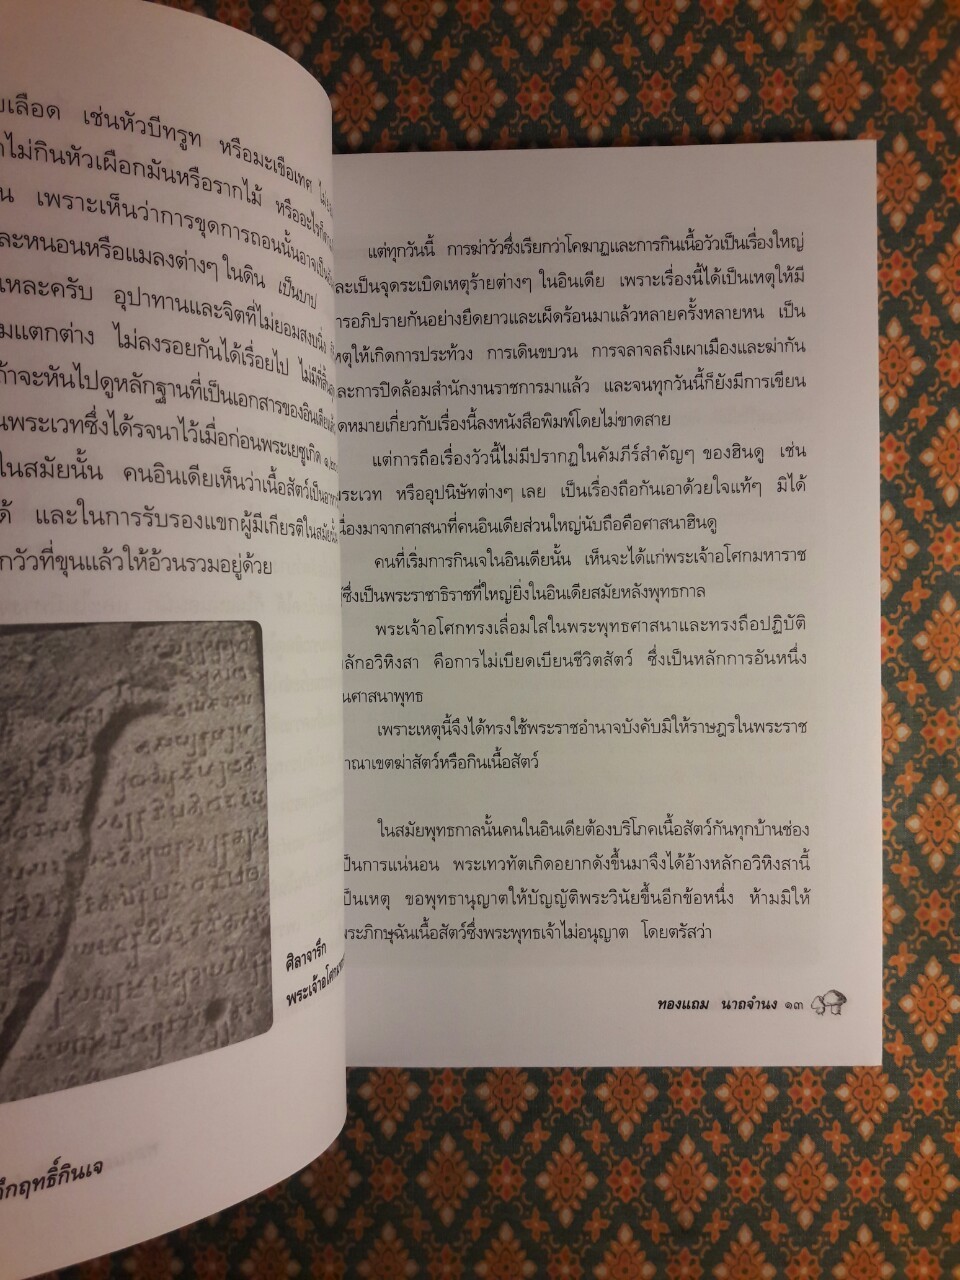 เลือด เช่นหัวบีทรูท หรือมะเขือเทศ
ไม่กินหัวเผือกมันหรือรากไม้
เพราะเห็นว่าการขุดการถอนนั้นอาจเป็น
ละหนอนหรือแมลงต่างๆ ในดิน เป็นบาป
หละครับ อุปาทานและจิตที่ไม่ยอมสงบนิ่ง
มแตกต่าง ไม่ลงรอยกันได้เรื่อยไป
ถ้าจะหันไปดูหลักฐานที่เป็นเอกสารของอินเดีย
นพระเวทซึ่งได้รจนาไว้เมื่อก่อนพระเยซูเกิด
ในสมัยนั้น คนอินเดียเห็นว่าเนื้อสัตว์เป็น
ได้ และในการรับรองแขกผู้มีเกียรติในสมัย
กวัวที่ขุนแล้วให้อ้วนรวมอยู่ด้วย
ศิลาจารึก
พระเจ้าอโศก
กฤทธิ์กินเจ
แต่ทุกวันนี้ การฆ่าวัวซึ่งเรียกว่าโคฆาฏและการกินเนื้อวัวเป็นเรื่องใหญ่
ละเป็นจุดระเบิดเหตุร้ายต่างๆ ในอินเดีย เพราะเรื่องนี้ได้เป็นเหตุให้มี
ารอภิปรายกันอย่างยืดยาวและเผ็ดร้อนมาแล้วหลายครั้งหลายหน เป็น
หตุให้เกิดการประท้วง การเดินขบวน การจลาจลถึงเผาเมืองและฆ่ากัน
ละการปิดล้อมสำนักงานราชการมาแล้ว และจนทุกวันนี้ก็ยังมีการเขียน
ดหมายเกี่ยวกับเรื่องนี้ลงหนังสือพิมพ์โดยไม่ขาดสาย
แต่การถือเรื่องวัวนี้ไม่มีปรากฏในคัมภีร์สำคัญๆ ของฮินดู เช่น
พระเวท หรืออุปนิษัทต่างๆ เลย เป็นเรื่องถือกันเอาด้วยใจแท้ๆ มิได้
นื่องมาจากศาสนาที่คนอินเดียส่วนใหญ่นับถือคือศาสนาฮินดู
คนที่เริ่มการกินเจในอินเดียนั้น เห็นจะได้แก่พระเจ้าอโศกมหาราช
ผู้ซึ่งเป็นพระราชาธิราชที่ใหญ่ยิ่งในอินเดียสมัยหลังพุทธกาล
พระเจ้าอโศกทรงเลื่อมใสในพระพุทธศาสนาและทรงถือปฏิบัติ
หลักอวิหิงสา คือการไม่เบียดเบียนชีวิตสัตว์ ซึ่งเป็นหลักการอันหนึ่ง
นศาสนาพุทธ
เพราะเหตุนี้จึงได้ทรงใช้พระราชอำนาจบังคับมิให้ราษฎรในพระราช
าณาเขตฆ่าสัตว์หรือกินเนื้อสัตว์
ในสมัยพุทธกาลนั้นคนในอินเดียต้องบริโภคเนื้อสัตว์กันทุกบ้านช่อง
ป็นการแน่นอน พระเทวทัตเกิดอยากดังขึ้นมาจึงได้อ้างหลักอวิหิงสานี้
ป็นเหตุ ขอพุทธานุญาตให้บัญญัติพระวินัยขึ้นอีกข้อหนึ่ง ห้ามมิให้
พระภิกษุฉันเนื้อสัตว์ซึ่งพระพุทธเจ้าไม่อนุญาต โดยตรัสว่า
ทองแถม นาถจำนง ๑๓